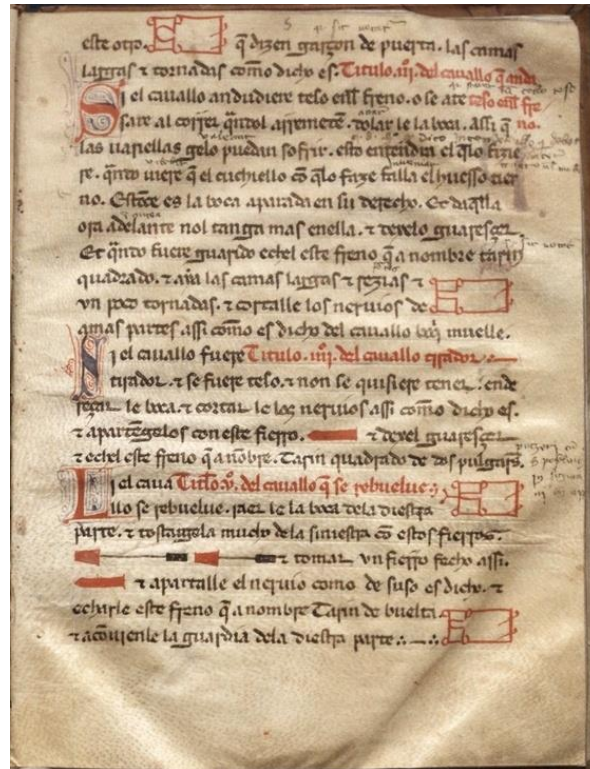 este otro. q̃ dizen garçon de puerta. las camas
largas ⁊ tornadas como dicho es. Titulo .iii. del cauallo q̃ anda
Si el cauallo andudiere teso en el freno. o se ate teso en el fre
sare al correr q̃ndol arremetẽ. tolar le la boca. assi q̃ no.
las uariellas gelo puedan sofrir. esto entendra el q̃lo fizie
re. q̃ndo uiere q̃ el cuchiello cõ q̃lo faze falla el huesso tier
no. Estõce es la boca aparada en su derecho. Et daq̃lla
ora adelante nol tanga mas en ella. ⁊ dexelo guarescer
Et q̃ndo fuere guarido echel este freno q̃ a nombre tarin
quadrado. ⁊ aya las camas largas ⁊ rezias ⁊
vn poco tornadas. ⁊ cortalle los neruios de
amas partes assi como es dicho del cauallo boq̃ muelle.
Si el cauallo fuere Titulo .iiii. del cauallo tirador
tirador. ⁊ se fuere teso. ⁊ non se quisiere tener. ende
reçar le la boca. ⁊ cortar le los neruios assi como dicho es.
⁊ apartẽgelos con este fierro. ⁊ dexel guarescer
⁊ echel este freno q̃ a nõbre. Tarin quadrado de dos pulgares.
Si el caua Titulo .v. del cauallo q̃ se rebuelue
llo se rebuelue. raer le la boca dela diestra
parte. ⁊ tostargela mucho dela siniestra cõ estos fierros.
⁊ tomar vn fierro fecho assi.
⁊ apartalle el neruio como de suso es dicho. ⁊
echarle este freno q̃ a nombre Tarin de buelta
⁊ acõuienle la guardia dela diestra parte